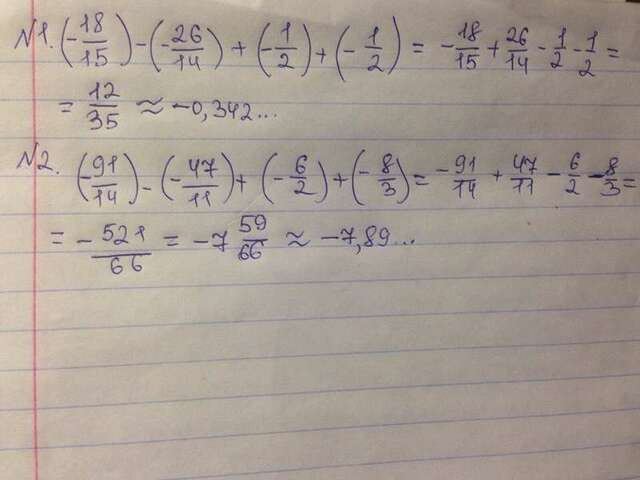 №1. (-18/15) - (-26/14) + (-1/2) + (-1/2) = -18/15 + 26/14 - 1/2 - 1/2 =
= 12/35 ≈ -0,342...
№2. (-91/14) - (-47/11) + (-6/2) + (-8/3) = -91/14 + 47/11 - 6/2 - 8/3 =
= -521/66 = -7 59/66 ≈ -7,89...